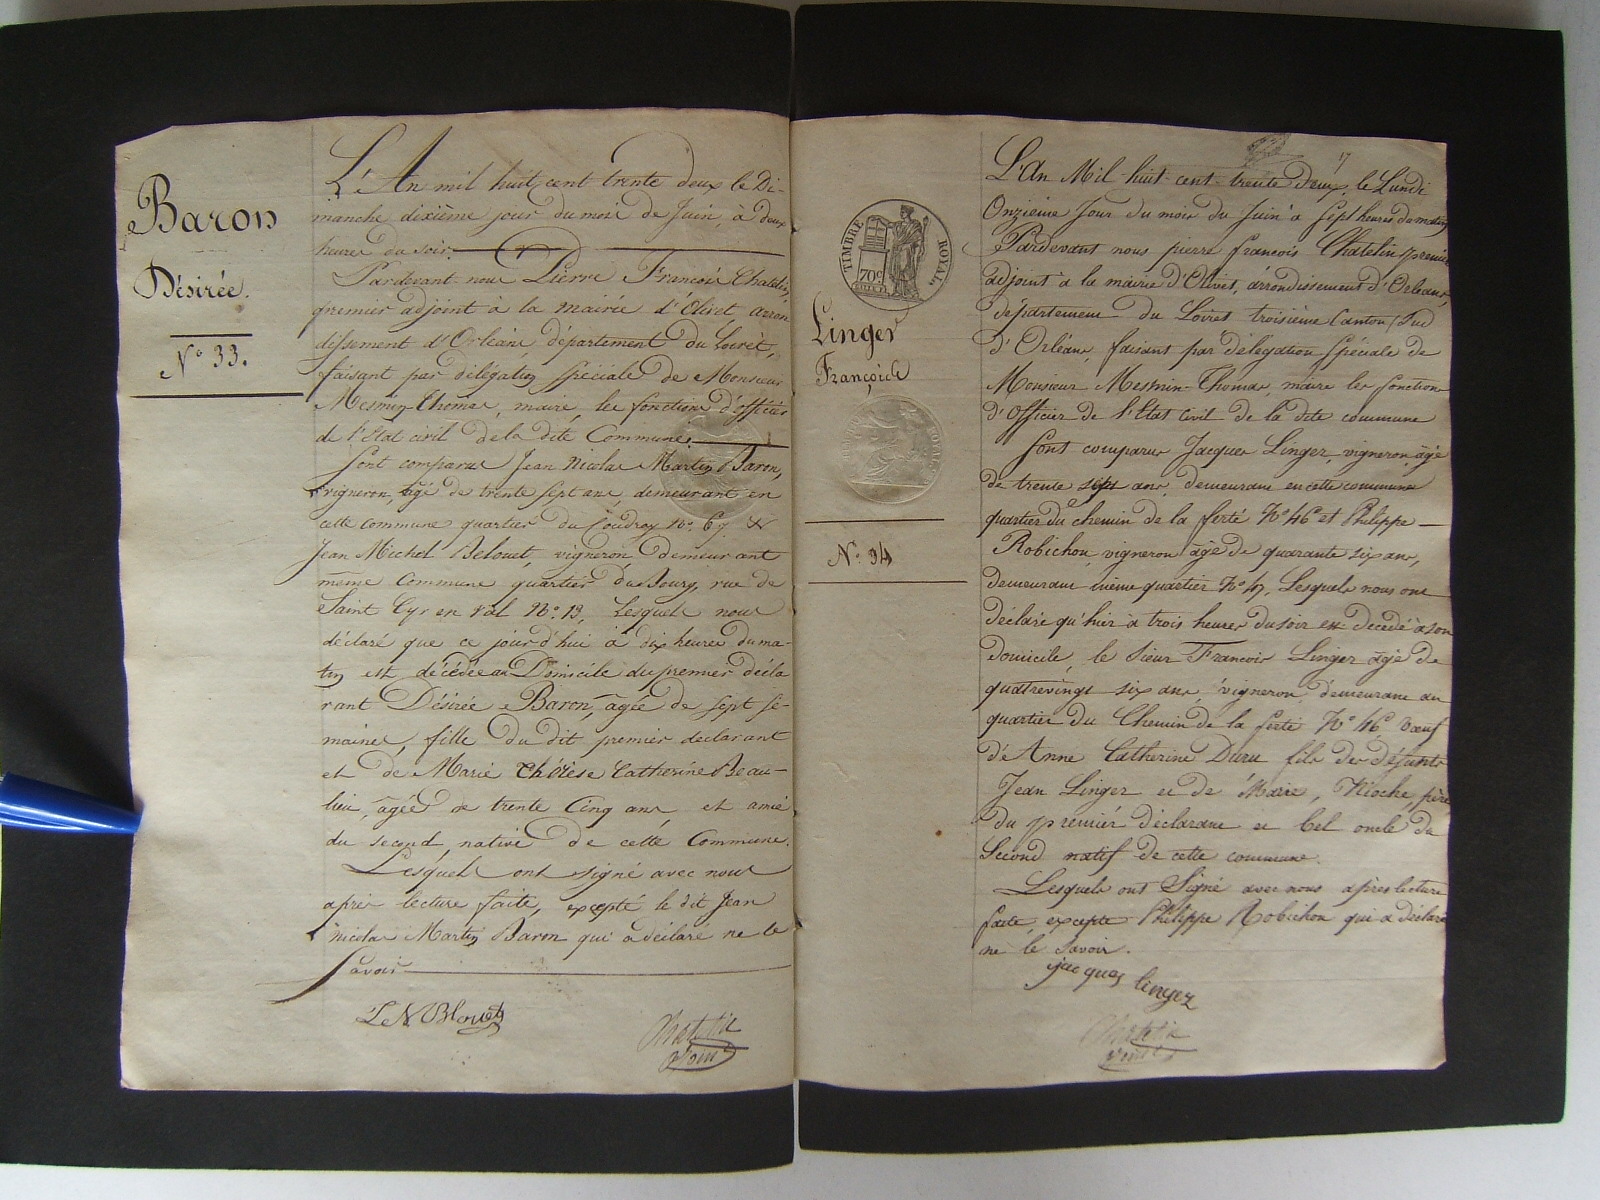 Baron
Désirée.
N° 33.
L'An mil huit cent trente deux le Di-
manche dixième jour du mois de Juin, à deux
heures du soir.
Pardevant nous Pierre François Chatelin,
premier adjoint à la mairie d'Olivet arron
dissement d'Orléans département du Loiret,
faisant par délégation spéciale de Monsieur
Mesmin Thomas, maire, les fonctions d'officier
de l'Etat civil de la dite Commune.
Sont comparus Jean Nicolas Martin Baron,
vigneron, âgé de trente sept ans, demeurant en
cette commune quartier du Coudray N° 67 &
Jean Michel Belouet, vigneron demeurant
même Commune quartier du Bourg, rue de
Saint Cyr en Val N° 13, Lesquels nous
déclaré que ce jour d'hui à dix heures du ma-
tin est décédée au Domicile du premier décla
rant Désirée Baron, âgée de sept se-
maines, fille du dit premier declarant
et de Marie Thérèse Catherine Beau-
lieu, âgée de trente Cinq ans, et amie
du second, native de cette Commune.
Lesquels ont signé avec nous
après lecture faite, excepté le dit Jean
nicolas Martin Baron qui a déclaré ne le
savoir
Chatelin
adjoint
17
TIMBRE ROYAL
70c
Linger
François
N° 34
L'An Mil huit cent trente deux, le Lundi
Onzieme Jour du mois du Juin a sept heures du matin
Pardevant nous pierre françois Chatelin premier
adjoint à la mairie d'Olivet, arrondissement d'Orleans,
département du Loiret troisième Canton Sud
d'Orléans, faisant par délégation spéciale de
Monsieur Mesmin Thomas, maire les fonctions
d'Officier de l'Etat Civil de la dite commune
Sont comparus Jacques Linger, vigneron, âgé
de trente sept ans, demeurant en cette commune
quartier du chemin de la ferté N° 46 et Philippe
Robichon, vigneron âgé de quarante six ans,
demeurant même quartier N° Lesquels nous ont
déclaré qu'hier à trois heures du soir est décédé à son
domicile, le sieur François Linger âgé de
quatrevingt six ans, vigneron, demeurant au
quartier du Chemin de la ferté N° 46 Vœuf
d'Anne Catherine Duru fils des défunts
Jean Linger et de Marie, Rioche, père
du premier déclarant et bel oncle du
Second natif de cette commune.
Lesquels ont Signé avec nous après lecture
faite, excepte Philippe Robichon qui a déclaré
ne le savoir.
jacques linger
Chatelin
adjoint